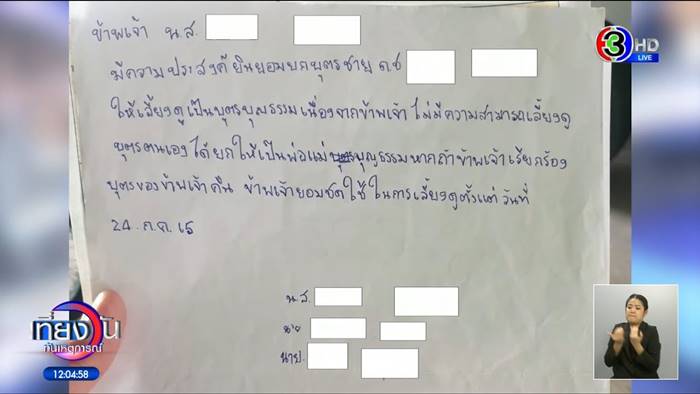 ข้าพเจ้า น.ส.
มีความประสงค์ยินยอมยกบุตรชาย ด.ช
ให้เลี้ยงดูเป็นบุตรบุญธรรมเนื่องจากข้าพเจ้า ไม่มีความสามารถเลี้ยงดู
บุตรตนเอง ได้ยกให้เป็นพ่อแม่ บุญธรรมหากถ้าข้าพเจ้าเรียกร้อง
บุตรของข้าพเจ้าคืน ข้าพเจ้ายอมชดใช้ ในการเลี้ยงดูตั้งแต่ วันที่
24. ก.ค. 65
น.ส.
นาย
นาย.
3 HD
LIVE
เที่ยงวัน
ทันเหตุการณ์
12:04:58